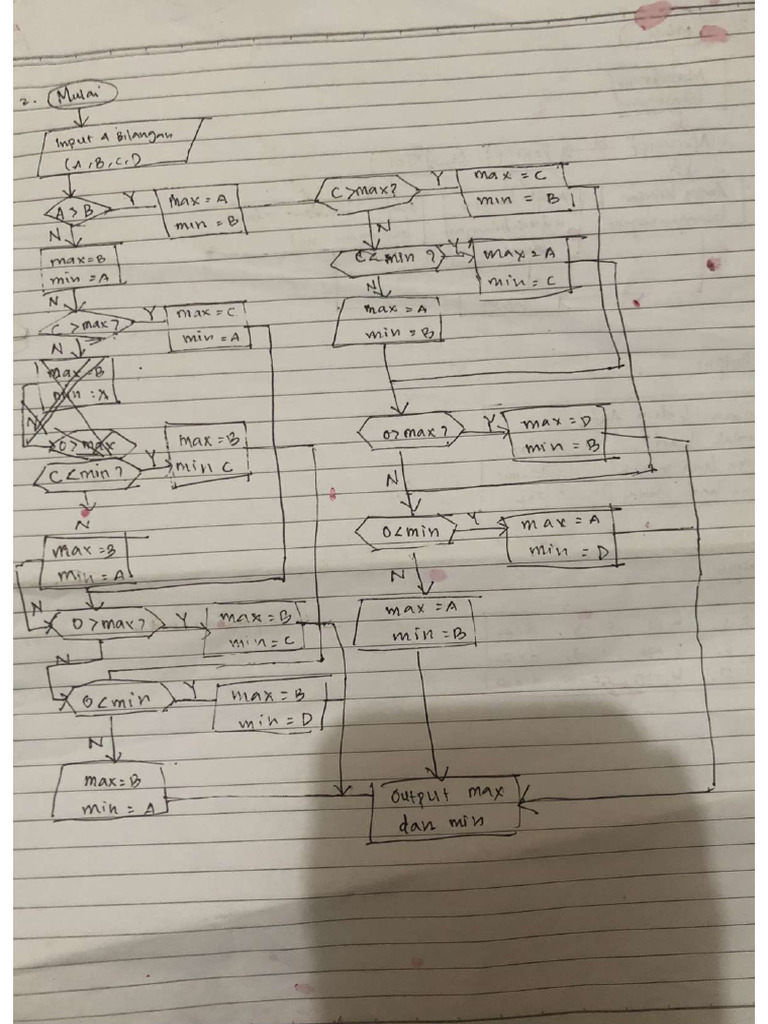 2. Mulai
Input 4 Bilangan
(A, B, C, D
A > B
Y
max = A
min = B
N
max = B
min = A
N
C > max?
Y
max = C
min = A
N
max = B
N
0 > max
C < min?
Y
max = B
min C
N
max = B
min = A
N
0 > max?
Y
max = B
min = C
N
0 < min
Y
max = B
min = D
N
max = B
min = A
C > max?
Y
max = C
min = B
N
C < min ?
Y
max = A
min = C
N
max = A
min = B
0 > max?
Y
max = D
min = B
N
0 < min
Y
max = A
min = D
N
max = A
min = B
Output max
dan min